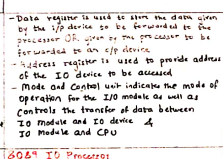 - Data register is used to store the data given
by the i/p device to be forwarded to the
processor OR given by the processor to be
forwarded to an o/p device
- Address register is used to provide address
of the IO device to be accessed
- Mode and Control unit indicates the mode of
operation for the I/O module as well as
controls the transfer of data between
IO Module and IO device &
IO Module and CPU
8089 IO Processor